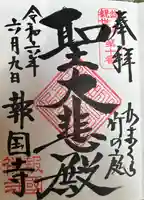 奉拝
聖大悲殿
かまくら
竹の庭
報国寺
令和六年
六月九日